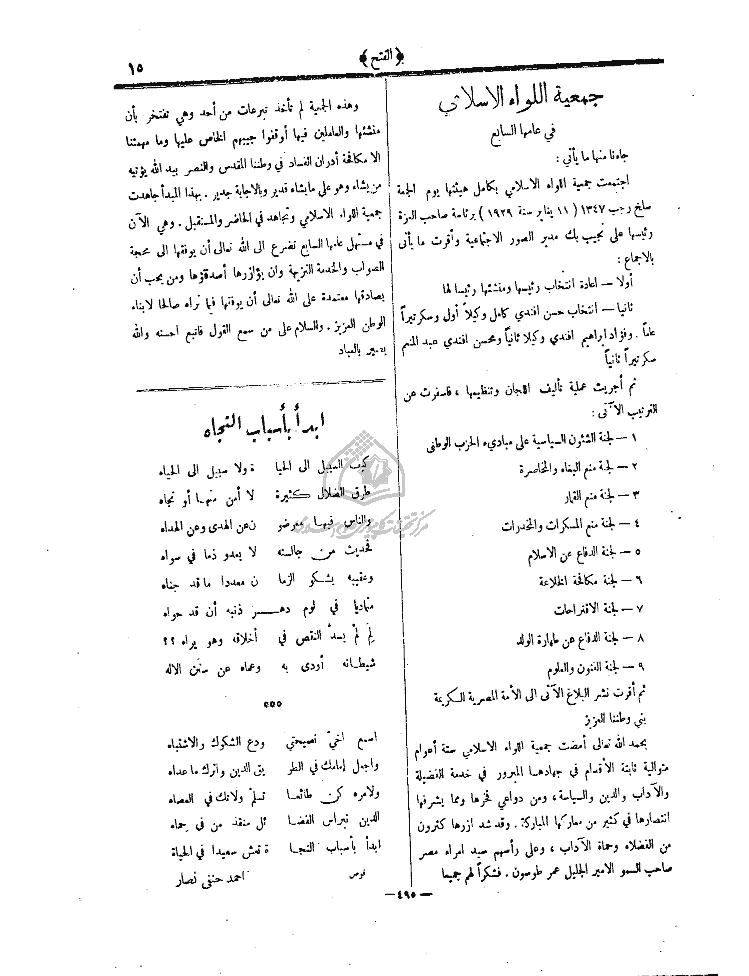 ﴿ الفتح ﴾
١٥
جمعية اللواء الاسلامي
في عامها السابع
جاءنا منها ما يأتي :
اجتمعت جمعية اللواء الاسلامي بكامل هيئتها يوم الجمعة
سلخ رجب ١٣٤٧ ( ١١ يناير سنة ١٩٢٩ ) برئاسة صاحب العزة
رئيسها على نجيب بك مدير الصور الاجتماعية وأقرت ما يأتى
بالاجماع :
أولا — اعادة انتخاب رئيسها ومنشئها رئيسا لها
ثانيا — انتخاب حسن افندي كامل وكيلاً أول وسكرتيراً
عاماً . وفؤاد ابراهيم افندي وكيلا ثانياً ومحسن افندي عبد المنعم
سكرتيراً ثانياً
ثم أجريت عملية تأليف اللجان وتنظيمها ، فأسفرت عن
الترتيب الآتى :
١ — لجنة الشئون السياسية على مبادىء الحزب الوطنى
٢ — لجنة منع البغاء والمخاصرة
٣ — لجنة منع القمار
٤ — لجنة منع المسكرات والمخدرات
٥ — لجنة الدفاع عن الاسلام
٦ — لجنة مكافحة الخلاعة
٧ — لجنة الاقتراحات
٨ — لجنة الدفاع عن طهارة الولد
٩ — لجنة الفنون والعلوم
ثم أقرت نشر البلاغ الآتى الى الأمة المصرية الكريمة
بني وطننا العزيز
بحمد الله تعالى أمضت جمعية اللواء الاسلامي ستة أعوام
متوالية ثابتة الأقسام في جهادها المبرور في خدمة الفضيلة
والآداب والدين والسياسة ، ومن دواعي فخرها ومما يشرفها
انتصارها في كثير من معاركها المباركة . وقد شد ازرها كثرون
من الفضلاء وحماة الآداب ، وعلى رأسهم سيد امراء مصر
صاحب السمو الامير الجليل عمر طوسون . فشكراً لهم جميعا
وهذه الجمية لم تأخذ تبرعات من أحد وهي تفتخر بأن
منشئها والعاملين فيها أوقفوا جيبهم الخاص عليها وما مهمتنا
الا مكافحة أدران الفساد في وطننا المقدس والنصر بيد الله يؤتيه
من يشاء وهو على مايشاء قدير وبالاجابة جدير . بهذا المبدأ جاهدت
جمعية اللواء الاسلامي وتجاهد في الحاضر والمستقبل . وهي الآن
في مستهل عامها السابع تضرع الى الله تعالى أن يوفقها الى محجة
الصواب والخدمة النزيهة وان يؤازرها أصدقؤها ومن يحب أن
يصادقها معتمدة على الله تعالى أن يوفقها فيما نراه صالحا لابناء
الوطن العزيز . والسلام على من سمع القول فاتبع احسنه والله
بصير بالعباد
ابدأ بأسباب النجاه
كيف السبيل الى الحيا ة ولا سبيل الى الحياه
طرق الضلال كثيرة لا أمن منها أو نجاه
والناس فيها معرضو ن عن الهدى وعن الهداه
فحديث من جالسته لا يعدو ذما في سواه
وعقيبه يشكو الزما ن معددا ما قد جناه
متماديا في لوم دهـ ـر ذنبه أن قد حواه
لِم لمْ يسدّ النقص في أخلاقه وهو يراه ؟؟
شيطانه أودى به وعماه عن سنن الاله
٥٥٥
اسمع اخيّ نصيحتي ودع الشكوك والاشتباه
واجعل إمامك في الطر يق الدين واترك ماعداه
ولامره كن طائعا تسلم ولاتك في العصاه
الدين نبراس الفضا ئل منقذ من في حماه
ابدأ بأسباب النجا ة تعش سعيدا في الحياة
قوص
احمد حنفي نصار
— ٤٩٥ —